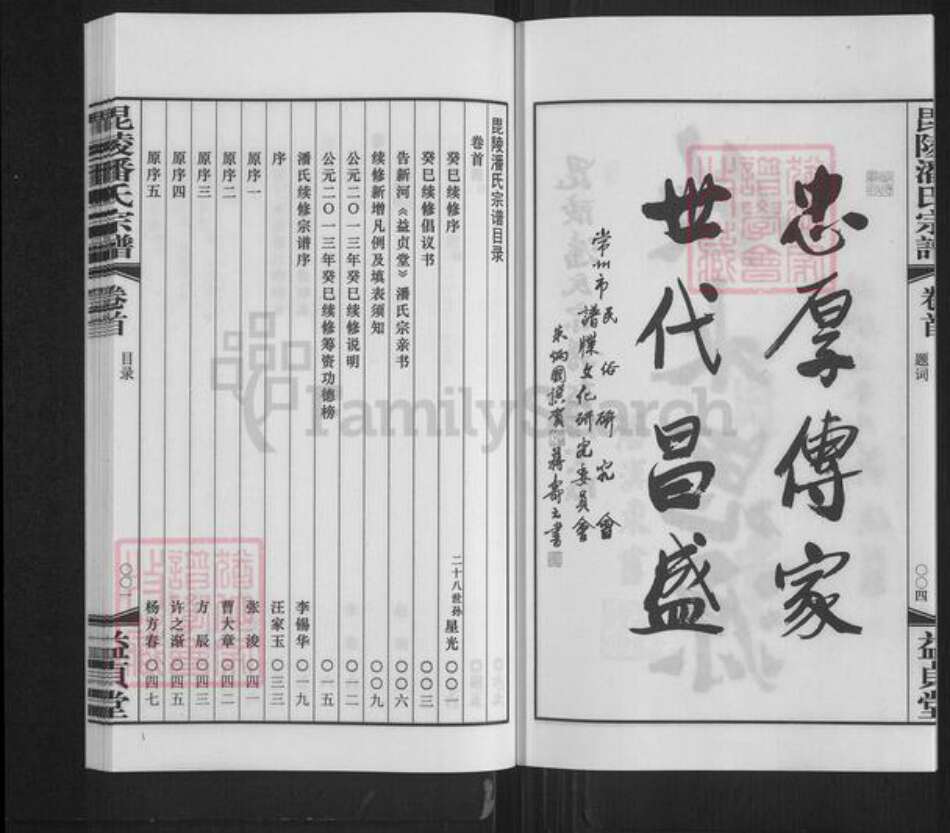 毗陵潘氏宗譜 卷首 题词 〇〇四 益貞堂
忠厚傳家
世代昌盛
常州市民俗研究會
譜牒文化研究委員會
朱炳國撰賀 蔣壽元書
毘陵潘氏宗谱目录
卷首
癸巳续修序 二十八世孙 星光 〇〇一
癸巳续修倡议书 〇〇三
告新河《益贞堂》潘氏宗亲书 〇〇六
续修新增凡例及填表须知 〇〇九
公元二〇一三年癸巳续修说明 〇一二
公元二〇一三年癸巳续修筹资功德榜 〇一五
潘氏续修宗谱序 李锡华 〇一九
序 汪家玉 〇三三
原序一 张浚 〇四一
原序二 曹大章 〇四二
原序三 方辰 〇四三
原序四 许之渐 〇四五
原序五 杨方春 〇四七
毗陵潘氏宗譜 卷首 目录 〇〇一 益貞堂
FamilySearch